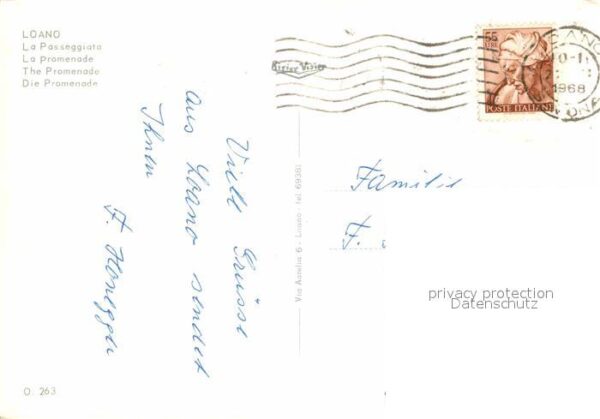 LOANO
La Passeggiata
La promenade
The Promenade
Die Promenade
Viele Grüsse
aus Loano sendet
Ihnen
F. Honegger
O. 263
Via Aurelia 6 - Loano - tel. 69381
55
POSTE ITALIANE
1968
Familie
F.
privacy protection
Datenschutz